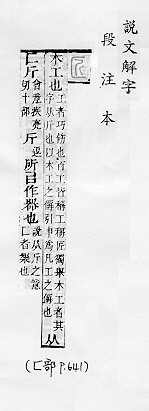 說文解字
段注本
木工也
工者巧飭也百工皆稱工稱匠獨舉木工者其
字从斤也以木工之偁引申爲凡工之偁也
从
匚斤
會意疾亮
切十部
斤
所㠯作器也
說从斤之意
匚者榘也
(匚部 P.641)